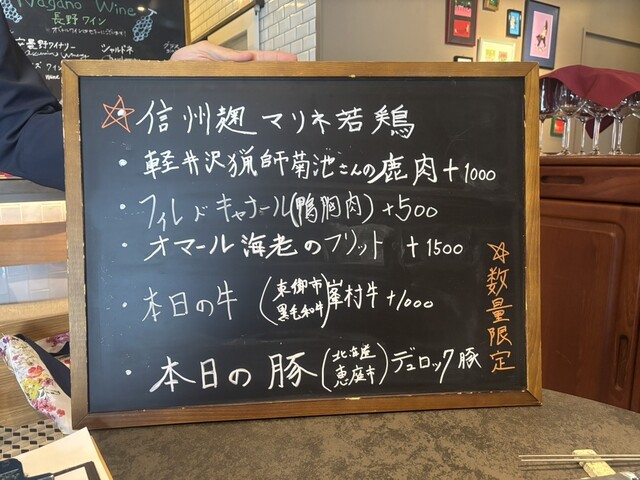 Nagano Wine
長野ワイン
安曇野ワイナリー
シャルドネ
☆信州麹マリネ若鶏
・軽井沢猟師菊池さんの鹿肉+1000
・フィレドキャナール(鴨胸肉)+500
・オマール海老のフリット +1500
・本日の牛(東御市黒毛和牛)峯村牛+1000
・本日の豚(北海道恵庭市)デュロック豚
☆数量限定